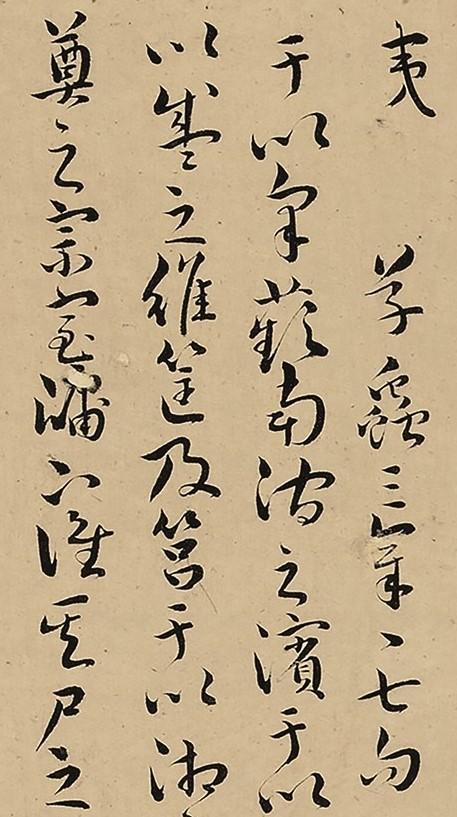 夷　草蟲三章〻七句
于以采蘋南澗之濱于以
以盛之維筐及筥于以湘
奠之宗室牖下誰其尸之